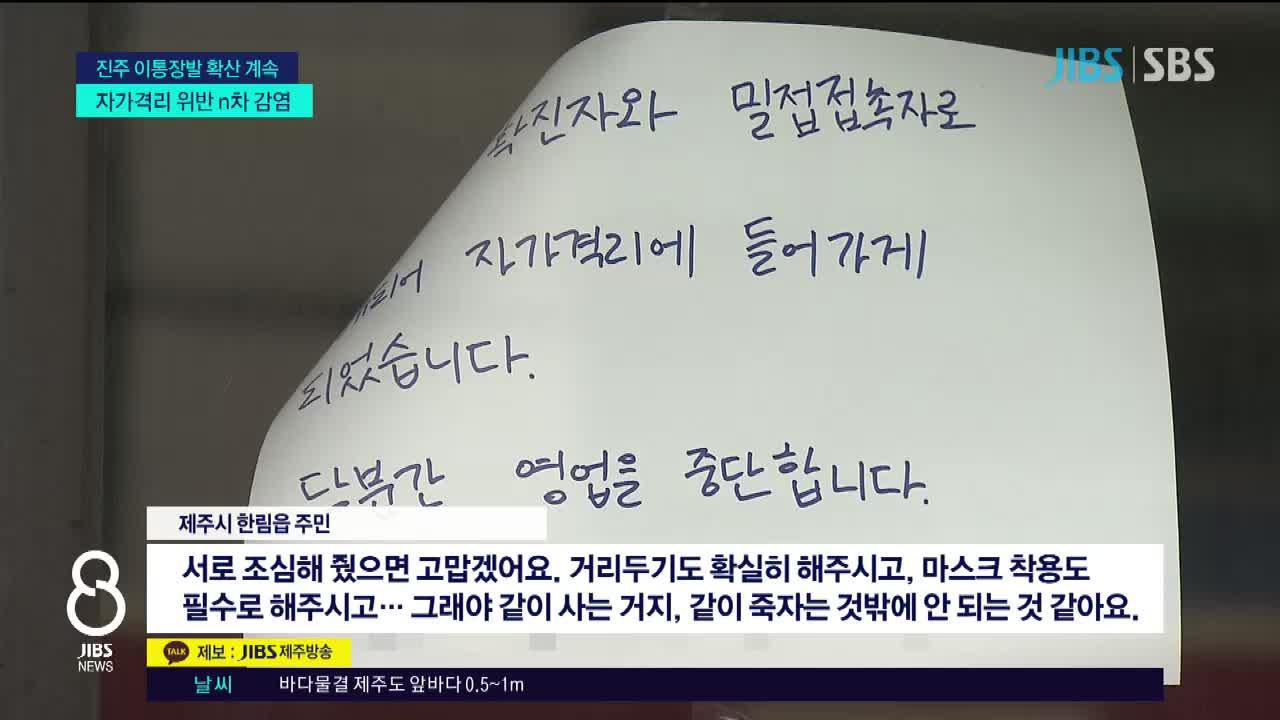 진주 이통장발 확산 계속
자가격리 위반 n차 감염
JIBS SBS
확진자와 밀접접촉자로
되어 자가격리에 들어가게
되었습니다.
당분간 영업을 중단합니다.
제주시 한림읍 주민
서로 조심해 줬으면 고맙겠어요. 거리두기도 확실히 해주시고, 마스크 착용도
필수로 해주시고… 그래야 같이 사는 거지, 같이 죽자는 것밖에 안 되는 것 같아요.
8
JIBS
NEWS
TALK 제보 : JIBS 제주방송
날씨 바다물결 제주도 앞바다 0.5~1m